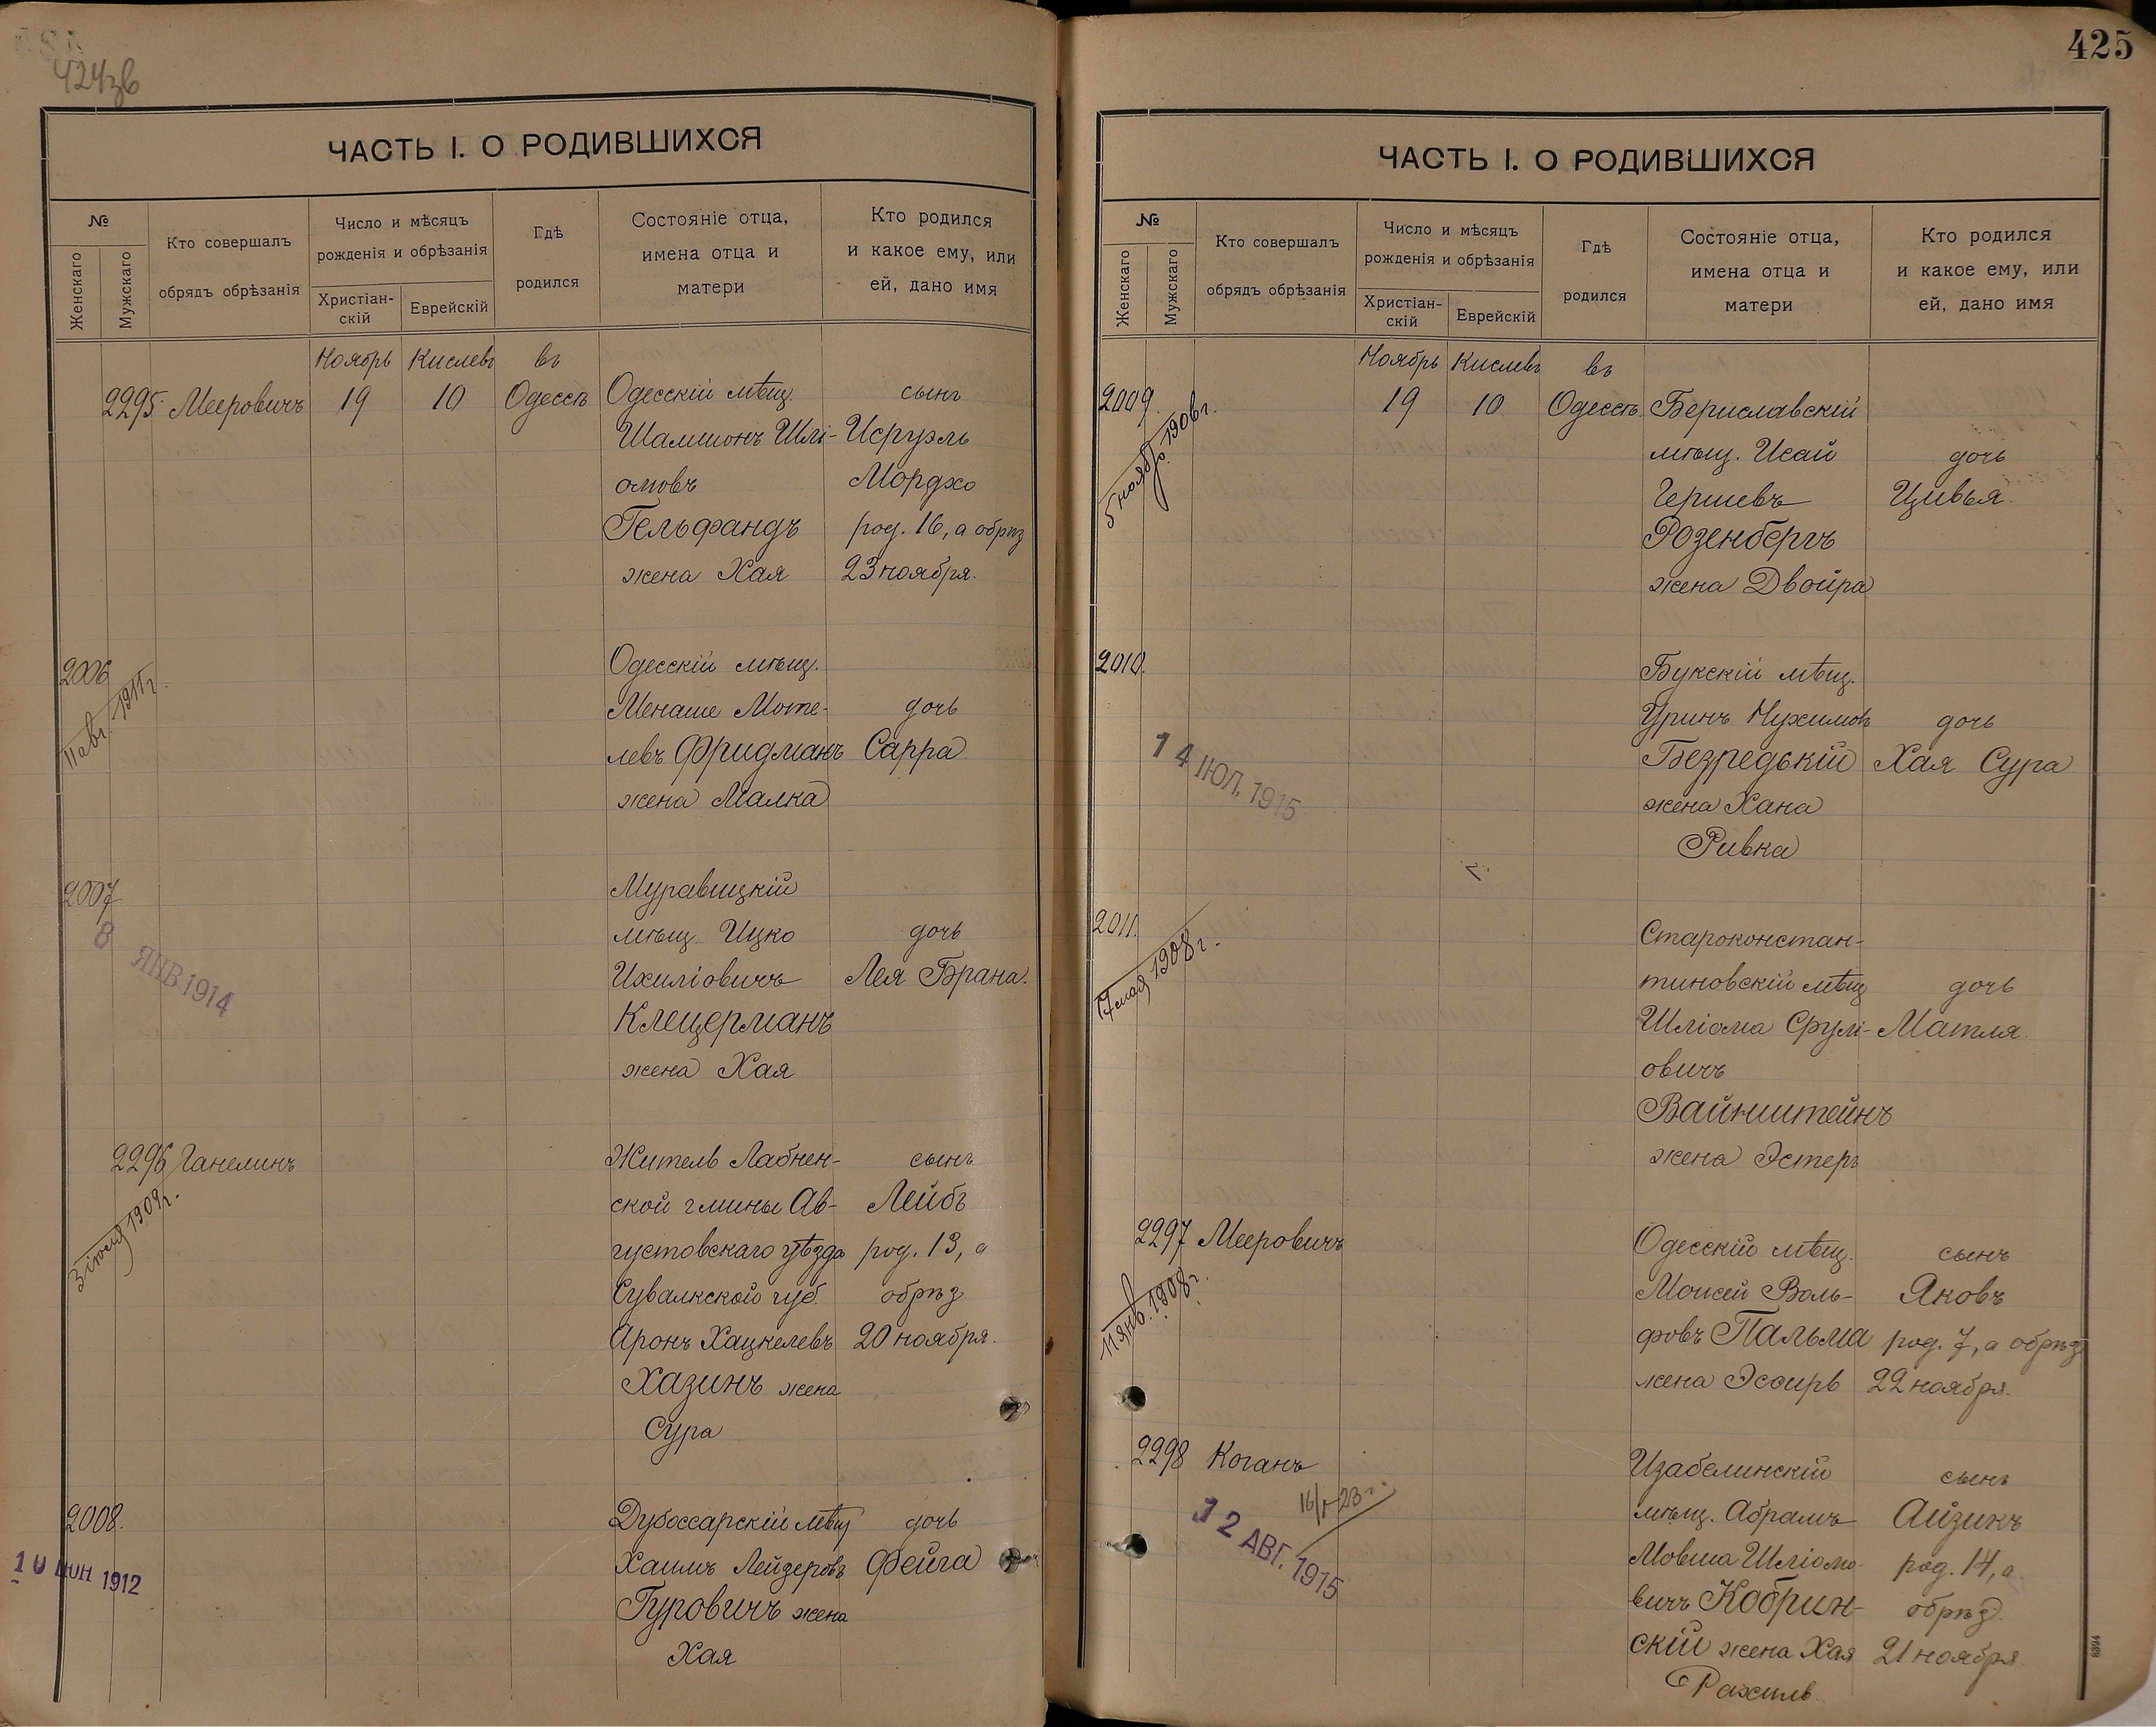 424зв
ЧАСТЬ I. О РОДИВШИХСЯ
№
Женскаго
Мужскаго
Кто совершалъ
обрядъ обрѣзанія
Число и мѣсяцъ
рожденія и обрѣзанія
Христіан-
скій
Еврейскій
Гдѣ
родился
Состояніе отца,
имена отца и
матери
Кто родился
и какое ему, или
ей, дано имя
Ноябрь Кислевъ въ
2295 Мееровичъ 19 10 Одессѣ Одесскій мѣщ. сынъ
Шамшонъ Шлі- Исруэль
омовъ Мордхо
Гельфандъ род. 16, а обрѣз
жена Хая 23 ноября.
2006 Одесскій мѣщ.
11 авг. 1911 г.
Менаше Моте- дочь
левъ Фридманъ Сарра
жена Малка
2007 Муравицкій
мѣщ Ицко дочь
8 ЯНВ. 1914
Ихиліовичъ Лея Брана.
Клещерманъ
жена Хая
2296 Ганелинъ Житель Лабнен- сынъ
3 іюля 1909 г.
ской гмины Ав- Лейбъ
густовскаго уѣзда род. 13, а
Сувалкской губ. обрѣз
Аронъ Хацкелевъ 20 ноября.
Хазинъ жена
Сура
2008. Дубоссарскій мѣщ дочь
10 1912
Хаимъ Лейзеровъ Фейга
Гуровичъ жена
Хая
425
ЧАСТЬ I. О РОДИВШИХСЯ
№
Женскаго
Мужскаго
Кто совершалъ
обрядъ обрѣзанія
Число и мѣсяцъ
рожденія и обрѣзанія
Христіан-
скій
Еврейскій
Гдѣ
родился
Состояніе отца,
имена отца и
матери
Кто родился
и какое ему, или
ей, дано имя
Ноябрь Кислевъ въ
2009. 19 10 Одессѣ Бериславскій
5 ноябр. 1906 г.
мѣщ. Исай дочь
Гершевъ Цивья
Розенбергъ
жена Двойра
2010. Букскій мѣщ.
Уринъ Нухимовъ дочь
14 ІЮЛ. 1915
Безредькій Хая Сура
жена Хана
Ривка
2011. Староконстан-
17 мая 1908 г.
тиновскій мѣщ дочь
Шліома Срулі- Матля
овичъ
Вайнштейнъ
жена Эстеръ
2297 Мееровичъ Одесскій мѣщ. сынъ
11 янв. 1908 г.
Моисей Воль- Яковъ
фовъ Пальма род. 7, а обрѣз
жена Эсѳирь 22 ноября.
2298 Коганъ Изабелинскій сынъ
12 АВГ. 1915
мѣщ. Абрамъ Айзикъ
Мовша Шліомо- род. 14, а
вичъ Кобрин- обрѣз.
скій жена Хая 21 ноября
Рахиль